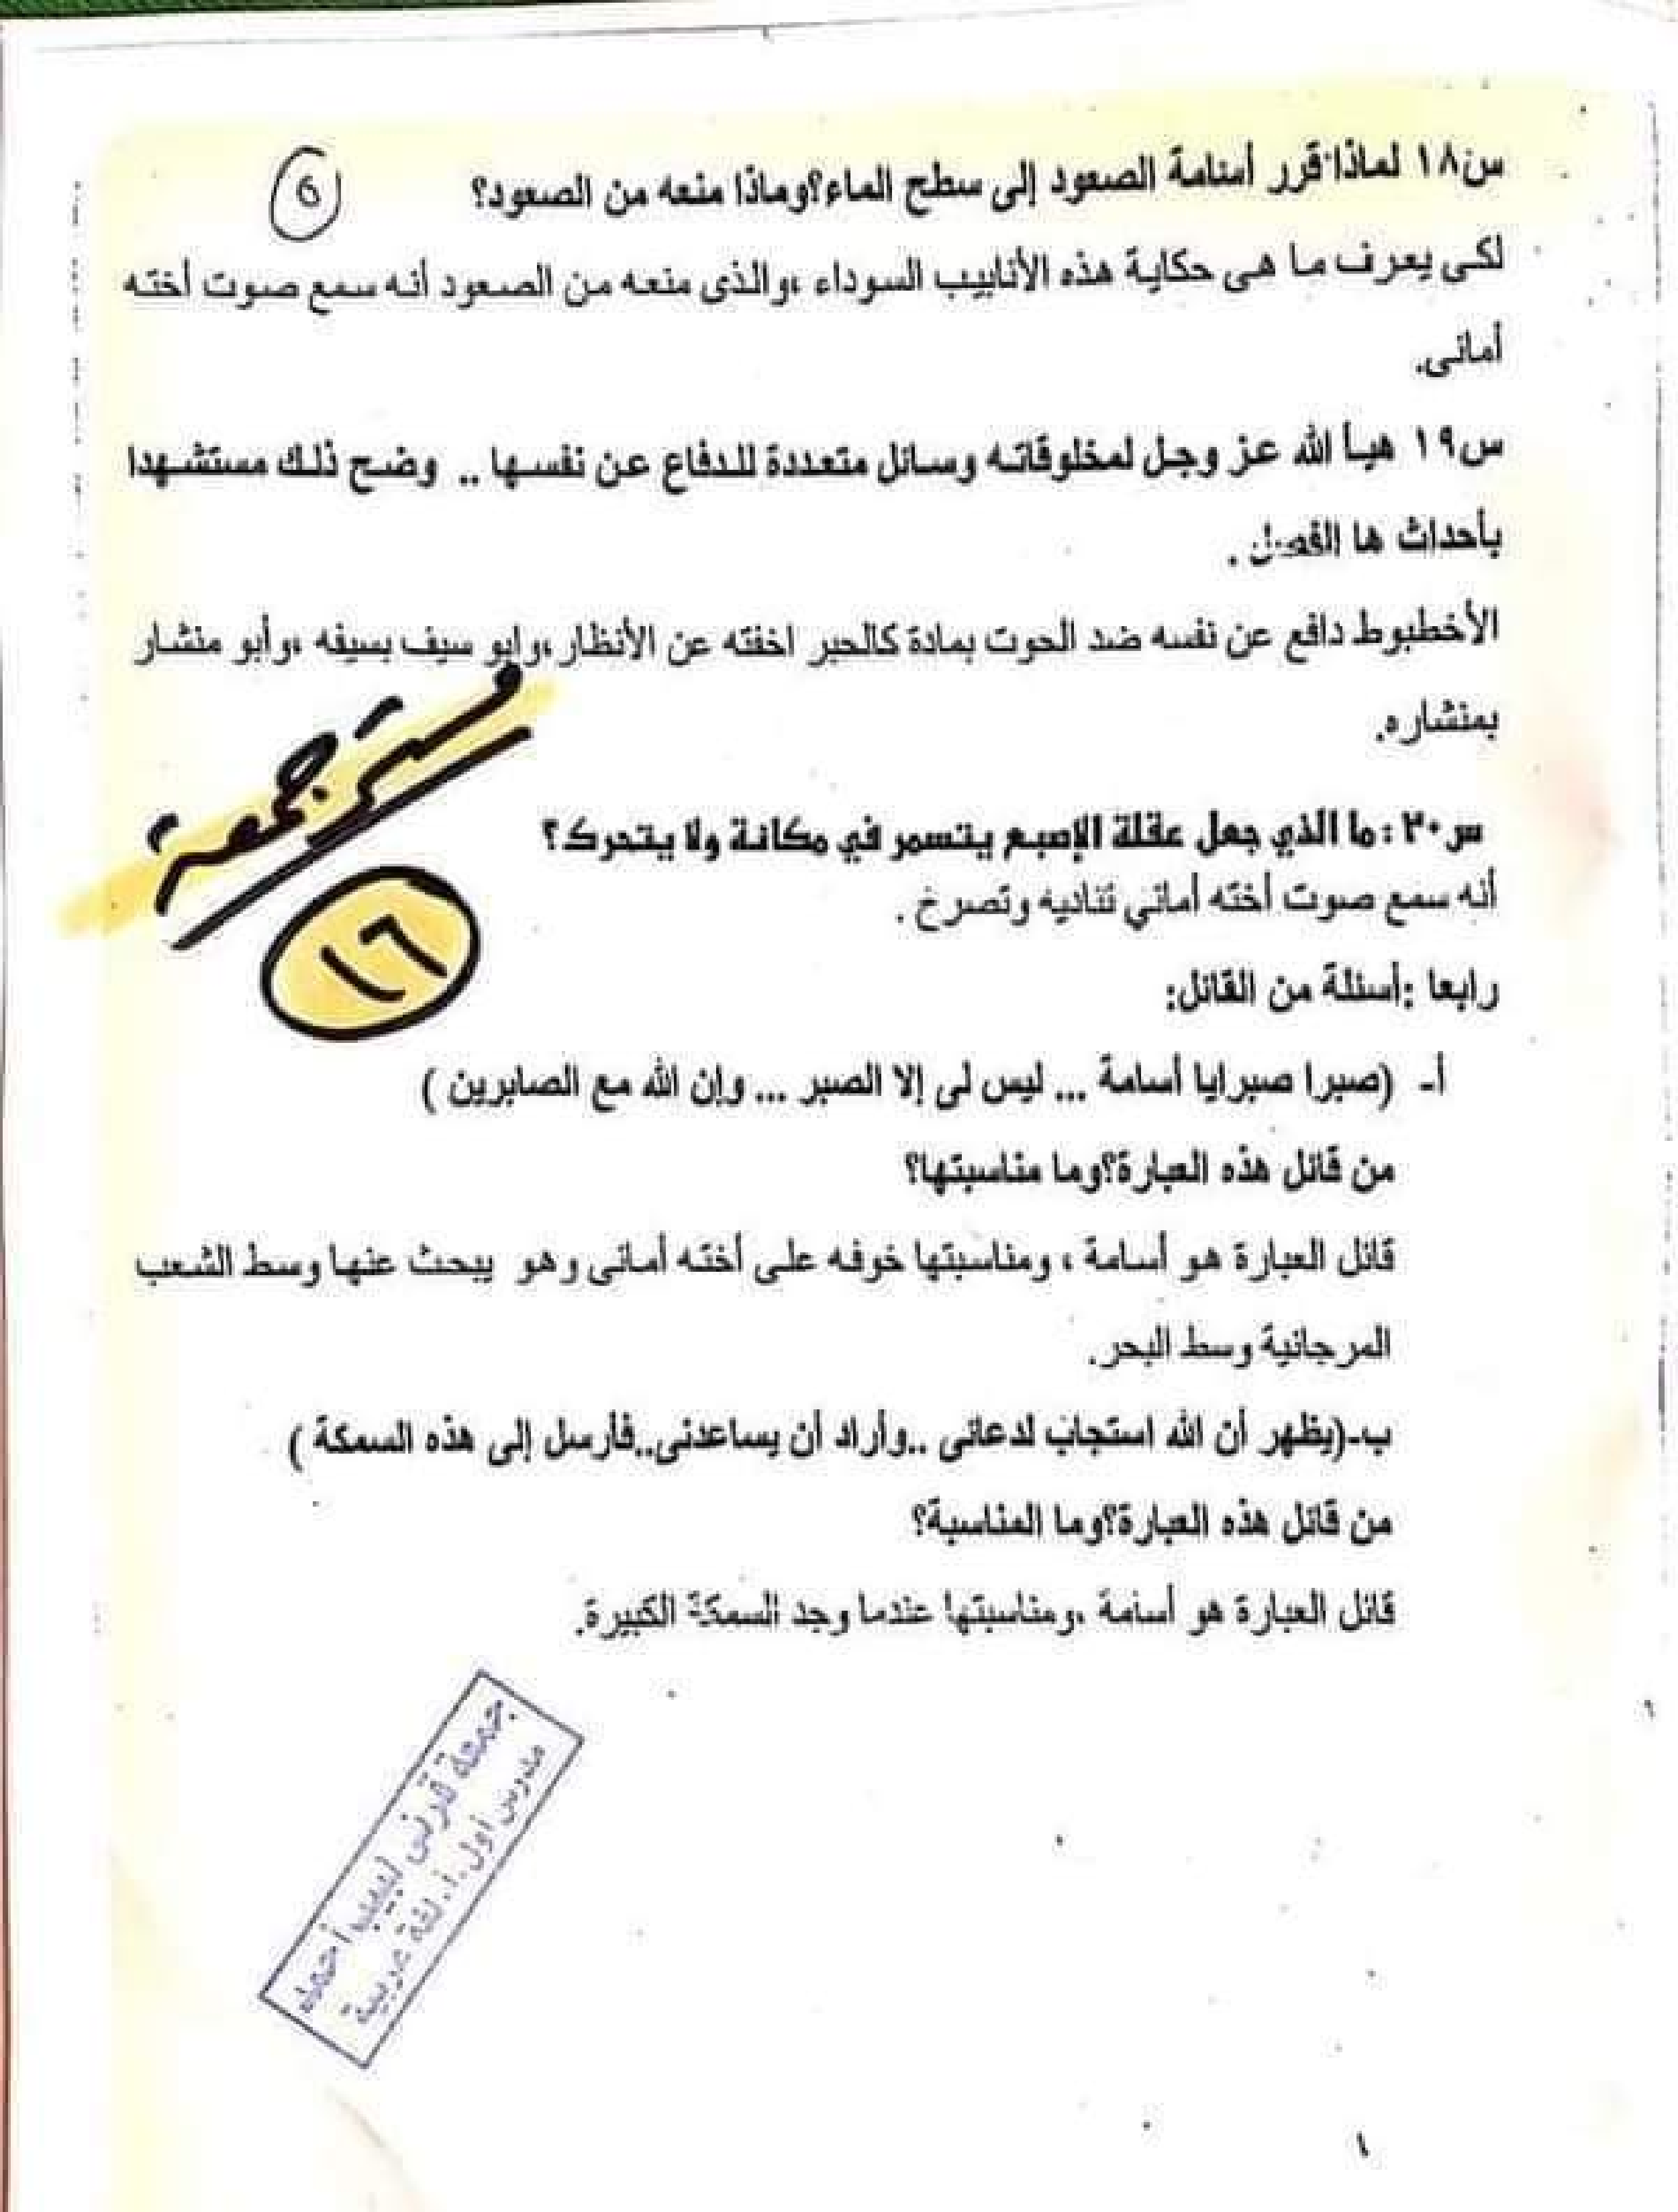 س١٨ لماذا قرر أسامة الصعود إلى سطح الماء؟وماذا منعه من الصعود؟
6
لكى يعرف ما هى حكاية هذه الأنابيب السوداء ،والذى منعه من الصعود أنه سمع صوت أخته
أمانى.
س١٩ هيأ الله عز وجل لمخلوقاته وسائل متعددة للدفاع عن نفسها .. وضح ذلك مستشهدا
بأحداث ها الفصل .
الأخطبوط دافع عن نفسه ضد الحوت بمادة كالحبر اخفته عن الأنظار ،وابو سيف بسيفه ،وأبو منشار
بمنشاره.
مستر جمعة
س٢٠ : ما الذي جعل عقلة الإصبع يتسمر في مكانة ولا يتحرك؟
أنه سمع صوت أخته أماني تناديه وتصرخ .
١٦
رابعا :أسئلة من القائل:
أ- (صبرا صبرايا أسامة ... ليس لى إلا الصبر ... وإن الله مع الصابرين )
من قائل هذه العبارة؟وما مناسبتها؟
قائل العبارة هو أسامة ، ومناسبتها خوفه على أخته أمانى وهو يبحث عنها وسط الشعب
المرجانية وسط البحر.
ب-(يظهر أن الله استجاب لدعائى ..وأراد أن يساعدنى..فأرسل إلى هذه السمكة )
من قائل هذه العبارة؟وما المناسبة؟
قائل العبارة هو أسامة ،ومناسبتها عندما وجد السمكة الكبيرة.
جمعة قرنى لبيب أحمد
مدرس أول أ. لغة عربية